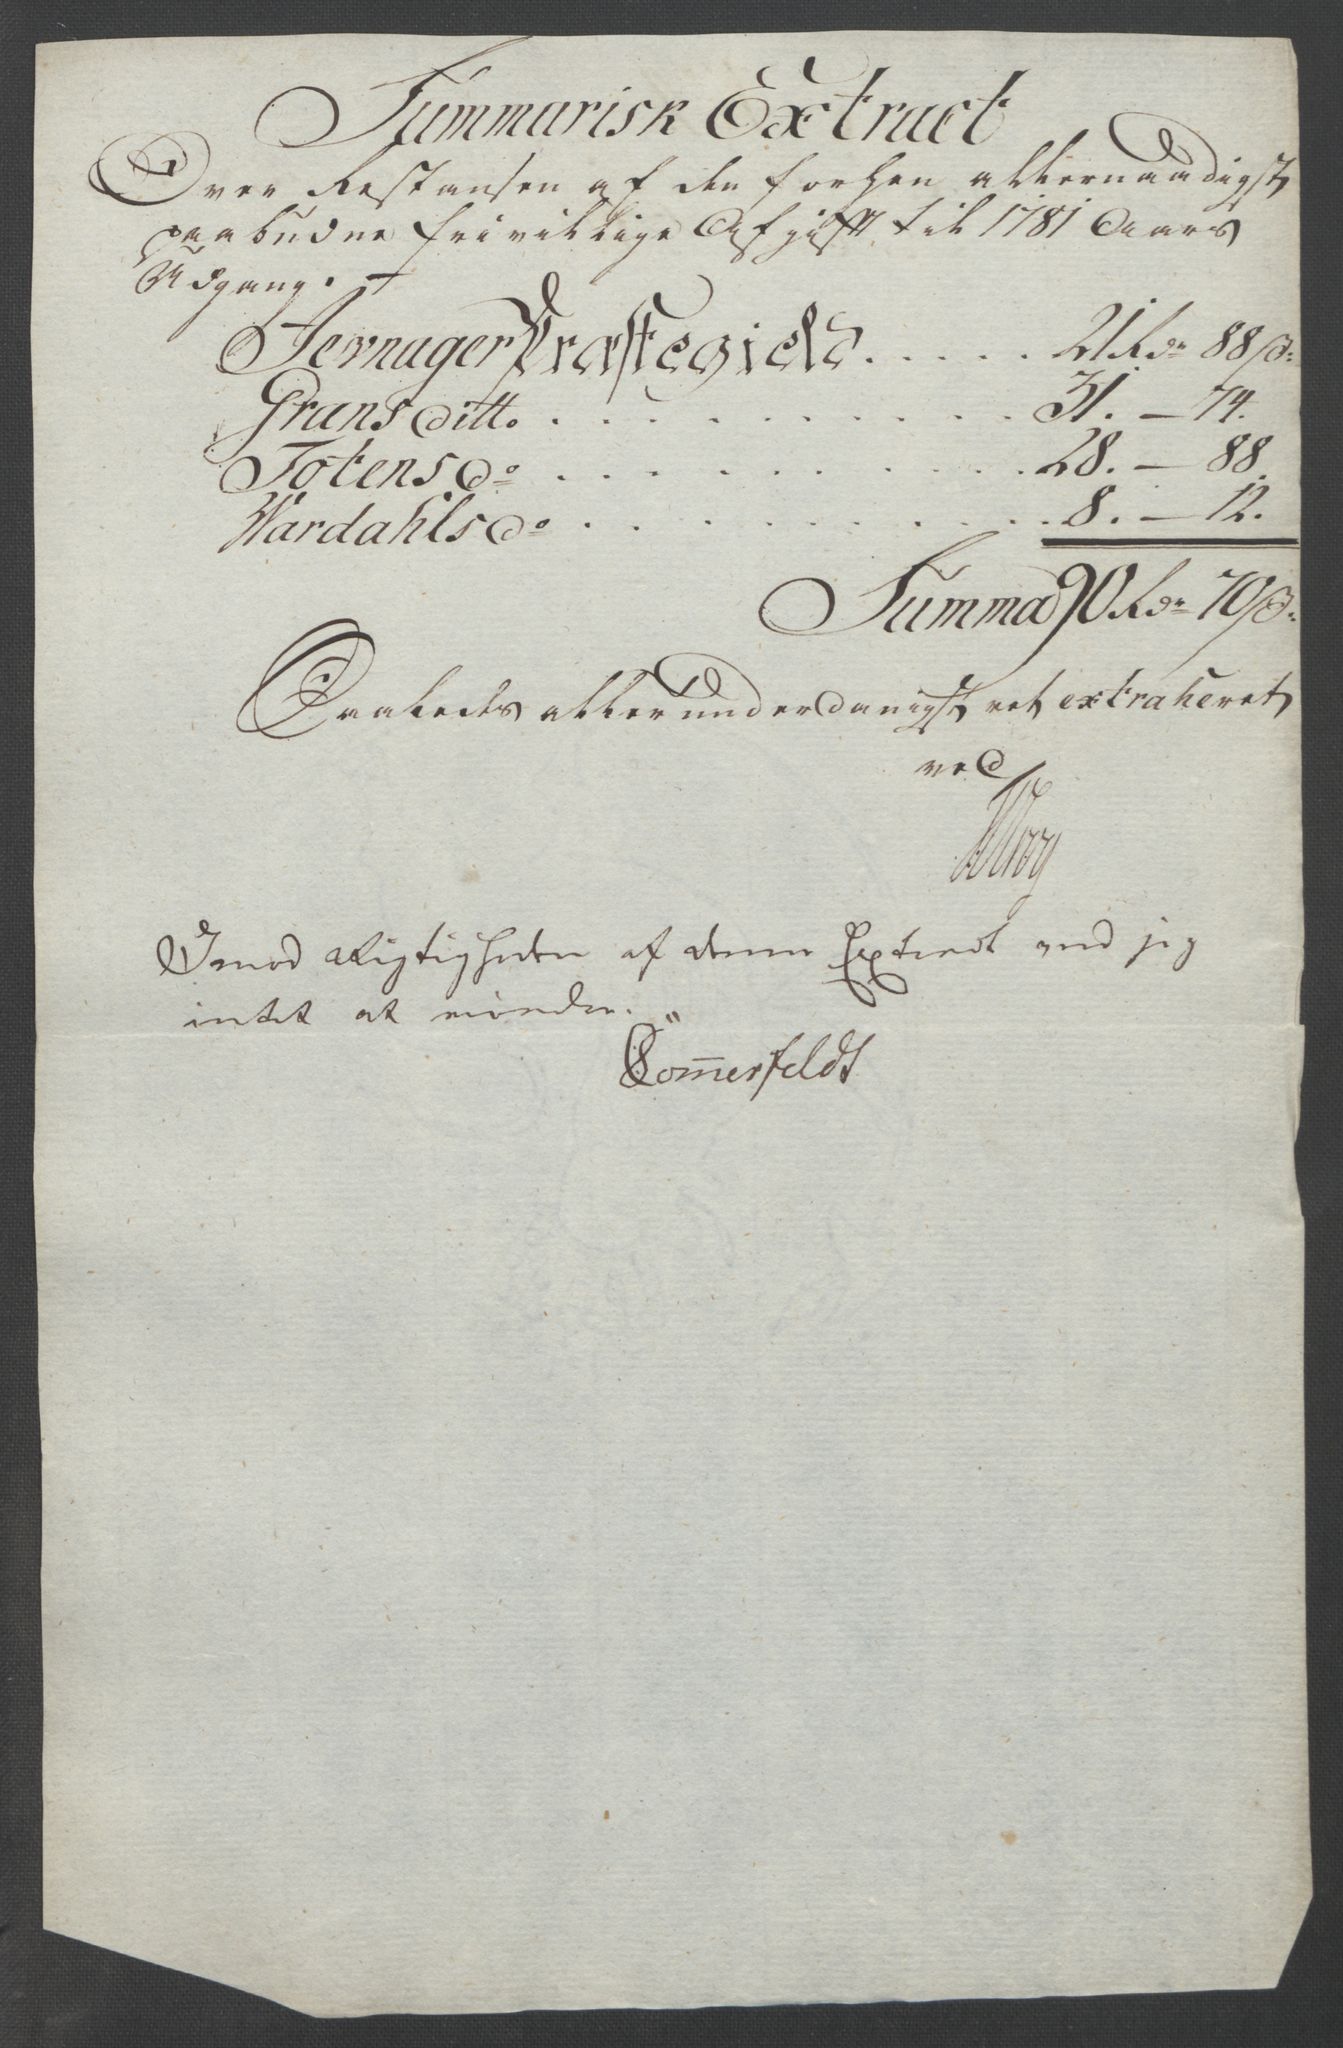 Summarisk Extract
Over Restansen af den forhen allernaadigst
paabudne frivillige Afgift til 1781 Aars
Udgang.
Jevnager Præstegield . . . . . 21 Rdr 88 ß:
Grans Ditto . . . . . . . . . . 31. — 74.
Totens Do . . . . . . . . . . . 28. — 88.
Wardahls Do . . . . . . . . . . . 8. — 12.
Summa 90 Rdr 70 ß:
Saaledes allerunderdanigst ret extraheret
ved
Imod Rigtigheden af denne Extract ved jeg
intet at erindre.
Sommerfeldt